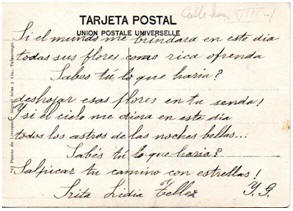 TARJETA POSTAL
UNION POSTALE UNIVERSELLE
Si el mundo me brindara en este dia
todas sus flores como rica ofrenda
Sabes tú lo que haria?
deshojar esas flores en tu senda!
Y si el cielo me diera en este dia
todos los astros de las noches bellas...
Sabés tú lo que haria?
Salpicar tu camino con estrellas!
Srita Lidia Tellez Y. G.